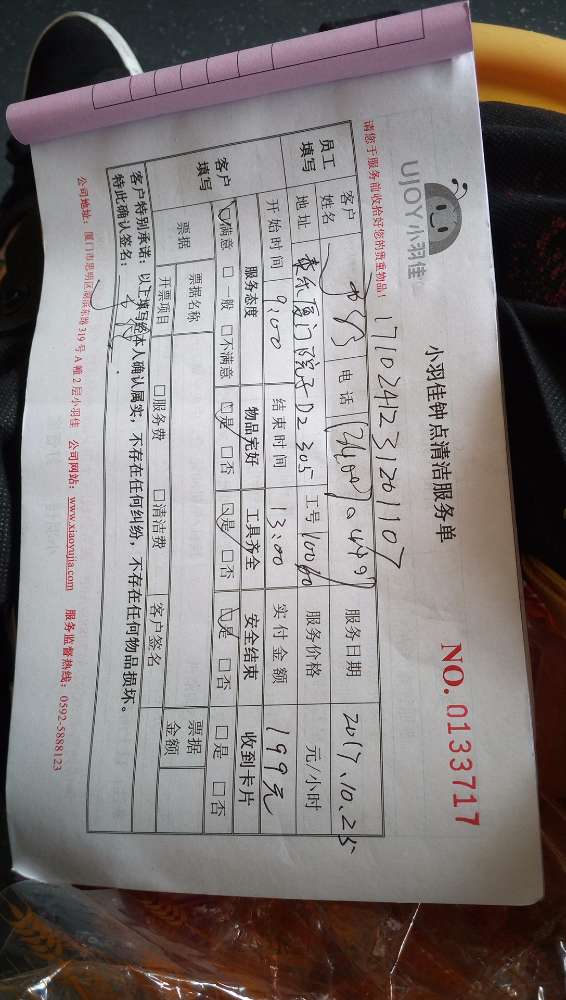 UJOY小羽佳
小羽佳钟点清洁服务单
NO. 0133717
请您于服务前收拾好您的贵重物品!
1710241231201107
员工填写 客户姓名 电话 服务日期 2017.10.25
地址 厦门院子D2 305 工号 服务价格 元/小时
开始时间 9:00 结束时间 13:00 实付金额 199元
客户填写 服务态度 物品完好 工具齐全 安全结束 收到卡片
☑满意 □一般 □不满意 ☑是 □否 ☑是 □否 ☑是 □否 □是 □否
票据 票据名称 客户签名 票据金额
开票项目 □服务费 □清洁费
客户特别承诺:以上填写经本人确认属实,不存在任何纠纷,不存在任何物品损坏。
特此确认签名:
公司地址:厦门市思明区湖滨东路319号A幢2层小羽佳 公司网站:www.xiaoyujia.com 服务监督热线:0592-5888123